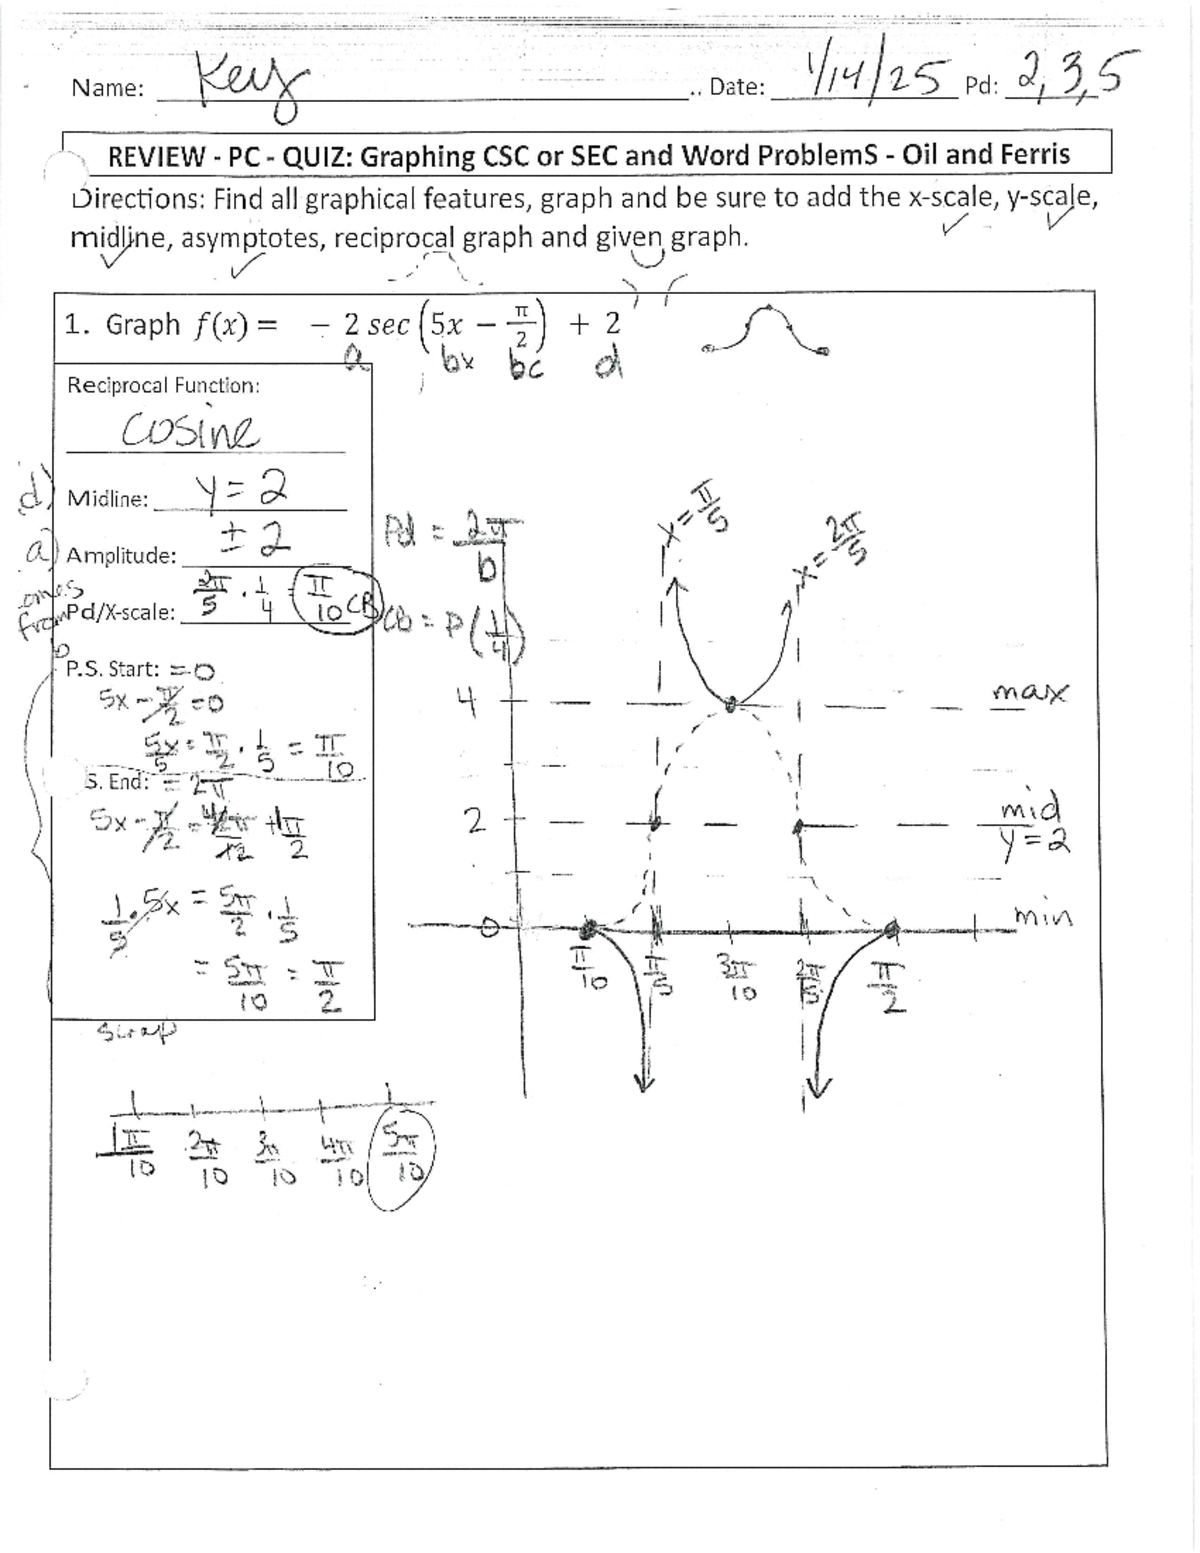 Name: Key .. Date: 1/14/25 Pd: 2,3,5
REVIEW - PC - QUIZ: Graphing CSC or SEC and Word ProblemS - Oil and Ferris
Directions: Find all graphical features, graph and be sure to add the x-scale, y-scale,
midline, asymptotes, reciprocal graph and given graph.
1. Graph f(x) = - 2 sec (5x - π/2) + 2
a bx bc d
Reciprocal Function:
cosine
d) Midline: y = 2
a) Amplitude: ± 2
comes from b
Pd/X-scale: 2π/5 · 1/4 = π/10 CB
Pd = 2π/b
Cb = P(1/4)
P.S. Start: = 0
5x - π/2 = 0
5x/5 = π/2 · 1/5 = π/10
S. End: = 2π
5x - π/2 = 4π/2 + 1π/2
1/5 · 5x = 5π/2 · 1/5
= 5π/10 = π/2
scrap
1π/10 2π/10 3π/10 4π/10 5π/10
x = π/5
x = 2π/5
4 max
2 mid
y = 2
0 min
π/10 π/5 3π/10 2π/5 π/2